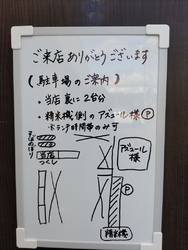 ご来店ありがとうございます
(駐車場のご案内)
・当店裏に2台分
・精米機側のアズュール様Ⓟ
※ランチ時間帯のみ可
そばのぼり
当店
つくし
アズュール様
Ⓟ
精米機